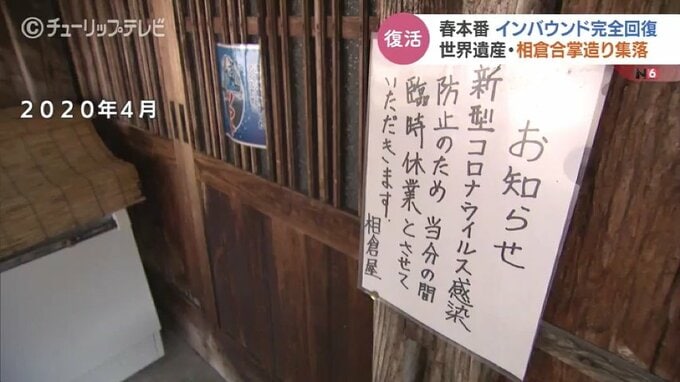 チューリップテレビ
復活
春本番 インバウンド完全回復
世界遺産・相倉合掌造り集落
N6
2020年4月
お知らせ
新型コロナウイルス感染
防止のため 当分の間
臨時休業とさせて
いただきます.
相倉屋